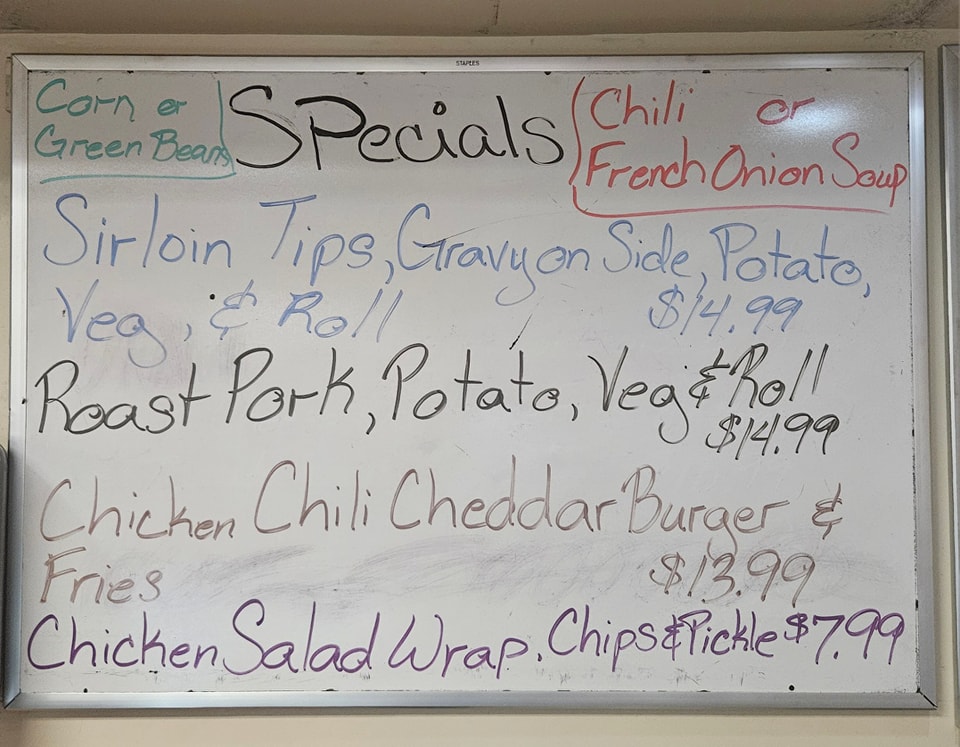 STAPLES
Corn or
Green Beans
Specials
Chili or
French Onion Soup
Sirloin Tips, Gravy on Side, Potato,
Veg, & Roll $14.99
Roast Pork, Potato, Veg & Roll
$14.99
Chicken Chili Cheddar Burger &
Fries $13.99
Chicken Salad Wrap, Chips & Pickle $7.99